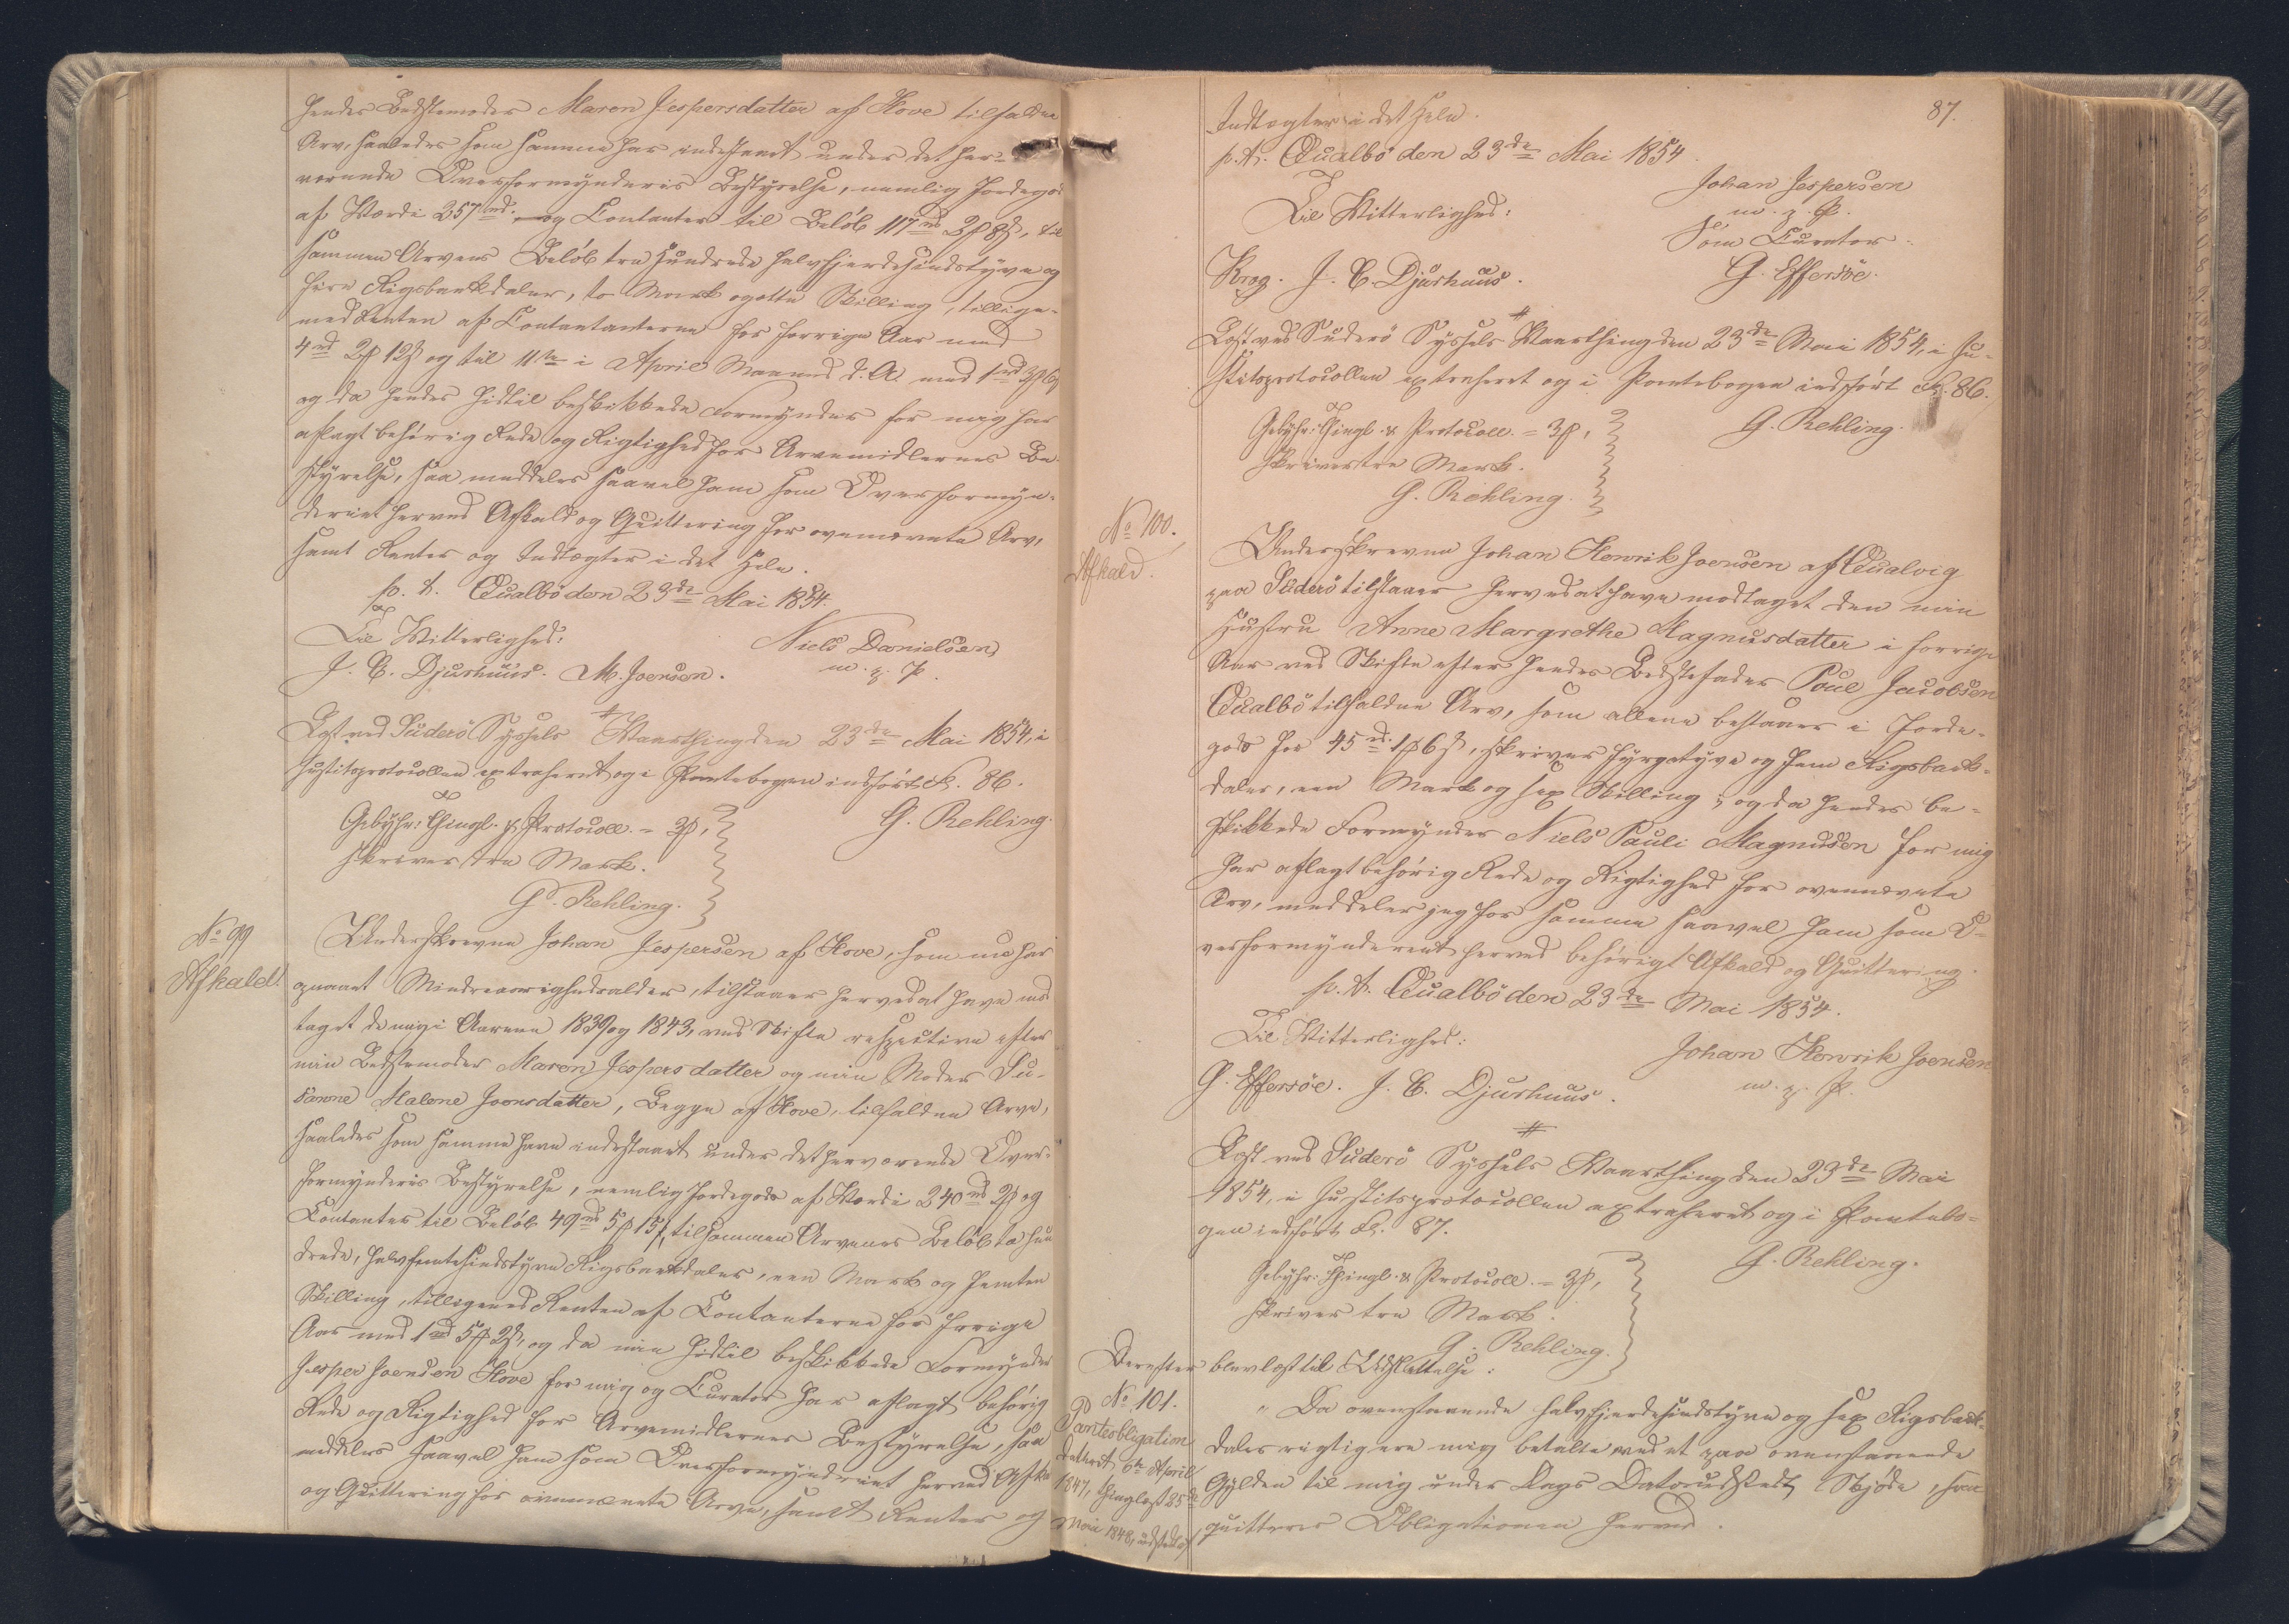 hendes Bedstemoder Maren Jespersdatter af Hove tilfaldne
Arv, saaledes som samme har indestaaet under det her-
værende Overformynderies Bestyrelse, nemlig Jordegods
af Værdi 257 rd. og Contanter til Beløb 117 rd 2 ₰ 8 s, til-
sammen Arvens Beløb tre hundrede halvfjerdesindstyve og
fire Rigsbankdaler, to Mark og otte Skilling, tillige-
med Renten af Contantanterne for forrige Aar med
4 rd 2 ₰ 12 s og til 11te i April Maaned d. A. med 1 rd
og da hendes hidtil beskikkede Formynder for mig har
aflagt behørig Rede og Rigtighed for Arvemidlernes Be-
styrelse, saa meddeles saavel ham som Overformyn-
deriet herved Afkald og Quittering for ovennævnte Arv,
samt Renter og Indtægter i det Hele.
p. t. Qualbö den 23de Mai 1854.
Til Vitterlighed: Niels Danielsen
J. C. Djurhuus. M. Joensen. m. p. P.
Læst ved Suderö Syssels Vaarthing den 23de Mai 1854, i
Justitsprotocollen extraheret og i Pantebogen indført Fol. 86.
Gebyhr: Thingl. & Protocoll. = 3 ₰, G. Rehling.
skriver tre Mark.
G. Rehling.
No 99
Afkald.
Underskrevne Johan Jespersen af Hove, som nu har
opnaaet Mindreaarighedsalder, tilstaaer herved at have mod-
taget de mig i Aarene 1839 og 1843, ved Skifte respective efter
min Bedstemoder Maren Jespersdatter og min Moder Su-
sanne Malene Joensdatter, Begge af Hove, tilfaldne Arve,
saaledes som samme have indestaaet under det herværende Over-
formynderies Bestyrelse, nemlig Jordegods af Værdi 240 rd 2 ₰ og
Contanter til Beløb 49 rd 5 ₰ 15 s, tilsammen Arvenes Beløb to hun-
drede, halvfemtesindstyve Rigsbankdaler, een Mark og femten
Skilling, tilligemed Renten af Contanterne for forrige
Aar med 1 rd 5 ₰ 2 s, og da min hidtil beskikkede Formynder
Jesper Joensen Hove for mig og Curator har aflagt behørig
Rede og Rigtighed for Arvemidlernes Bestyrelse, saa
meddeles saavel ham som Overformynderiet herved Afkald
og Quittering for ovennævnte Arve, samt Renter og
87.
Indtægter i det Hele.
p. t. Qualbö den 23de Mai 1854.
Johan Jespersen
Til Vitterlighed: m. p. P.
Som Curator:
Krog. J. C. Djurhuus. G. Effersöe.
Læst ved Suderö Syssels Vaarthing den 23de Mai 1854, i Ju-
stitsprotocollen extraheret og i Pantebogen indført Fol. 86.
Gebyhr: Thingl. & Protocoll. = 3 ₰, G. Rehling.
skriver tre Mark.
G. Rehling.
No 100.
Afkald.
Underskrevne Johan Henrik Joensen af Qualvig
paa Suderö tilstaaer herved at have modtaget den min
Hustru Anne Margrethe Magnusdatter i forrige
Aar ved Skifte efter hendes Bedstefader Poul Jacobsen
Qualbö tilfaldne Arv, som allene bestaaer i Jorde-
gods for 45 rd. 1 ₰ 6 s, skriver fyrgetyve og fem Rigsbank-
daler, een Mark og sex Skilling; og da hendes be-
skikkede Formynder Niels Pauli Magnusen for mig
har aflagt behørig Rede og Rigtighed for ovennævnte
Arv, meddeler jeg for samme saavel ham som O-
verformynderiet herved behørigt Afkald og Quittering.
p. t. Qualbö den 23de Mai 1854.
Til Vitterlighed: Johan Henrik Joensen
G. Effersöe. J. C. Djurhuus. m. p. P.
Læst ved Suderö Syssels Vaarthing den 23de Mai
1854, i Justitsprotocollen extraheret og i Pantebo-
gen indført Fol. 87.
Gebyhr: Thingl. & Protocoll. = 3 ₰, G. Rehling.
skriver tre Mark.
G. Rehling.
Derefter blev læst til Udslettelse:
No 101.
Panteobligation
dateret 6te April
1847, thinglæst 25de
Mai 1848, udstedt af
"Da ovenstaaende halvfjerdesindstyve og sex Rigsbank-
daler rigtig ere mig betalte ved et paa ovenstaaende
Gylden til mig under Dags Dato udstedt Skjøde, saa
quitteres Obligationen herved.